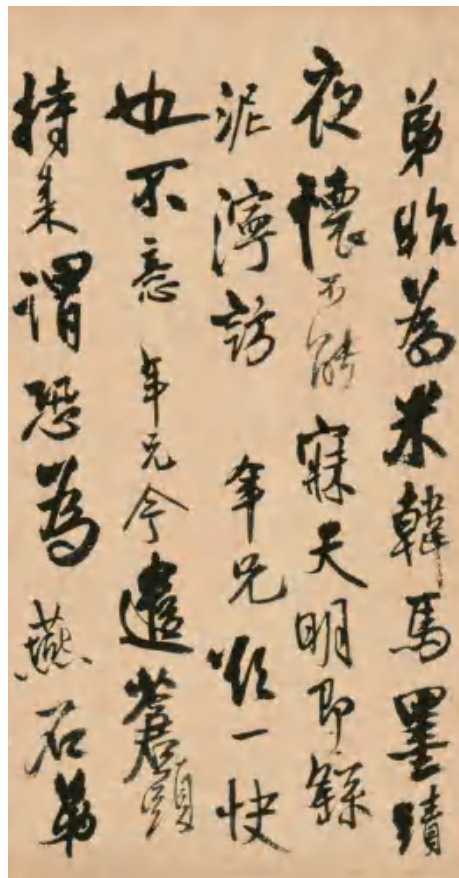 弟昨為米韓馬墨蹟
夜懷不能寐天明即
泥濘訪年兄欣一快
也不意年兄今遣蒼頭
持来謂恐為燕石弟